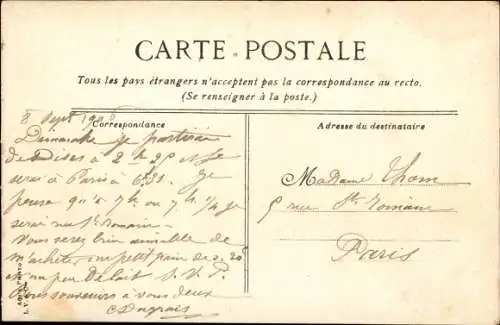 CARTE POSTALE
Tous les pays étrangers n'acceptent pas la correspondance au recto.
(Se renseigner à la poste.)
8 Sept 190
Correspondance
Adresse du destinataire
Dimanche je partirai
de à 2 h je
serai à Paris à 6.31. Je
pense qu'à 7 h ou 7 h ½ je
serai rue St Romain
Vous serez bien aimable de
m'acheter un petit pain de
et un peu De lait S.V.P.
souvenirs à vous deux
Madame Thom
5 rue St Romain
Paris